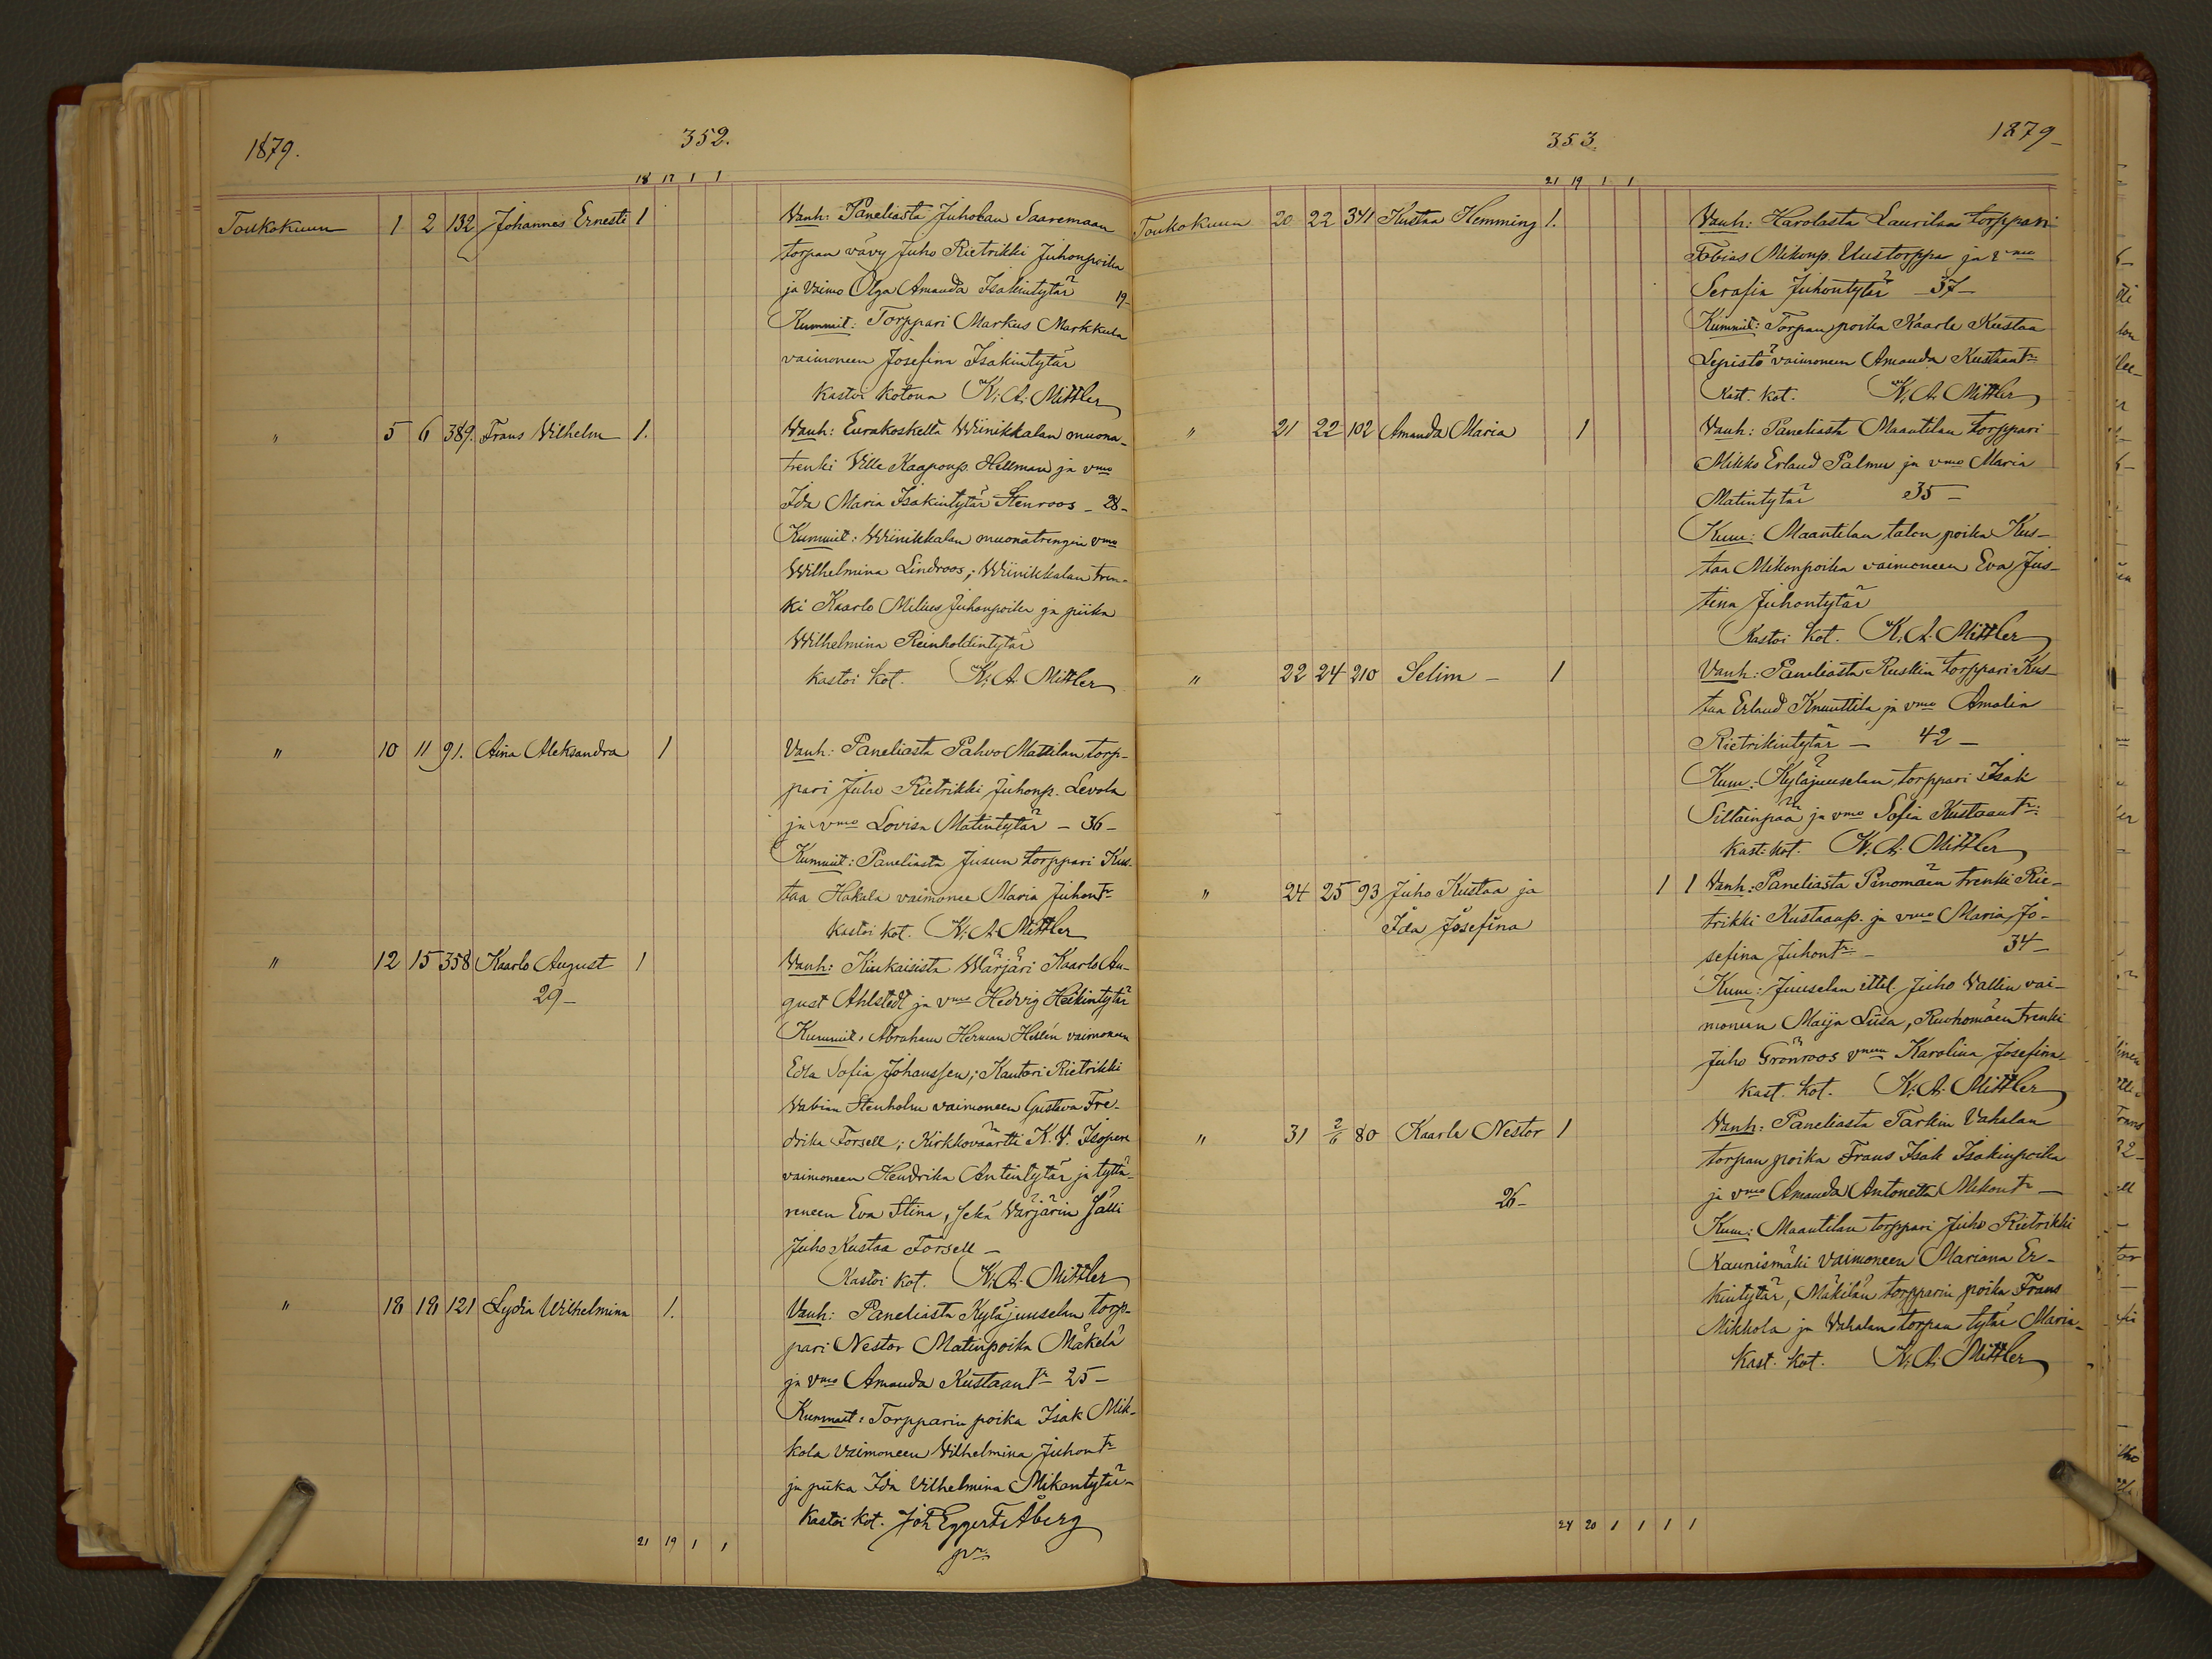 1879.
352.
18 17 1 1
Toukokuun 1 2 132 Johannes Ernesti 1
Vanh: Paneliasta Juholan Saaremaan
torpan vävy Juho Rietrikki Juhonpoika
ja vaimo Olga Amanda Isakintytär 19-
Kummit: Torppari Markus Markkula
vaimoneen Josefina Isakintytär
kastoi kotona K. A. Mittler
" 5 6 389. Frans Vilhelm 1.
Vanh: Eurakoskelta Wiinikkalan muona-
trenki Ville Kaaponp. Hellman ja vmo
Ida Maria Isakintytär Stenroos - 28 -
Kummit: Wiinikkalan muonatrengin vmo
Wilhelmina Lindroos; Wiinikkalan tren-
ki Kaarlo Milius Juhonpoika ja piika
Wilhelmina Reinholdintytär
kastoi kot. K. A. Mittler
" 10 11 91. Aina Aleksandra 1
Vanh: Paneliasta Pahvo Mattilan torp-
pari Juho Rietrikki Juhonp. Levola
ja vmo Lovisa Matintytär - 36 -
Kummit: Paneliasta Jusun torppari Kus-
taa Hakala vaimonee Maria Juhontr
kastoi kot. K. A. Mittler
" 12 15 358 Kaarlo August 1
29 -
Vanh: Kiukaisista Wärjäri Kaarlo Au-
gust Ahlstedt ja vmo Hedvig Heikintytär
Kummit: Abraham Herman Hellén vaimoneen
Edla Sofia Johanssen; Kantori Rietrikki
Wabian Stenholm vaimoneen Gustava Fre-
drika Forsell; Kirkkoväärtti K. V. Isopere
vaimoneen Hendrika Antintytär ja tyttä-
reneen Eva Stina, sekä Värjärin sälli
Juho Kustaa Forsell -
Kastoi kot. K. A. Mittler
" 18 18 121 Lydia Wilhelmina 1.
Vanh: Paneliasta Kyläjuuselan torp-
pari Nestor Matinpoika Mäkelä
ja vmo Amanda Kustaantr 25 -
Kummit: Torpparin poika Isak Mik-
kola vaimoneen Vilhelmina Juhontr
ja piika Ida Vilhelmina Mikontytär -
kastoi kot. Joh Eggert Åberg
21 19 1 1
353.
1879
21 19 1 1
Toukokuun 20 22 341 Kustaa Hemming 1.
Vanh: Harolasta Laurilan torppari
Tobias Mikonp. Uustorppa ja vmo
Serafia Juhontytär - 37 -
Kummit: Torpan poika Kaarle Kustaa
Lepistö vaimoneen Amanda Kustaantr
Kast. kot. K. A. Mittler
" 21 22 102 Amanda Maria 1
Vanh: Paneliasta Maantilan torppari
Mikko Erland Palmu ja vmo Maria
Matintytär 35 -
Kum: Maantilan talon poika Kus-
taa Mikonpoika vaimoneen Eva Jus-
tina Juhontytär
Kastoi kot. K. A. Mittler
" 22 24 210 Selim - 1
Vanh: Paneliasta Ruskin torppari Kus-
taa Erland Knuuttila ja vmo Amalia
Rietrikintytär - 42 -
Kum: Kyläjuuselan torppari Isak
Siltainpää ja vmo Sofia Kustaantr:
kast. kot. K. A. Mittler
" 24 25 93 Juho Kustaa ja 1 1
Ida Josefina
Vanh: Paneliasta Pinomäen trenki Rie-
trikki Kustaanp. ja vmo Maria Jo-
sefina Juhontr - 34 -
Kum: Juuselan ittel. Juho Vallin vai-
moneen Maija Liisa, Ruohomäen trenki
Juho Grönroos vmeen Karolina Josefina
kast. kot. K. A. Mittler
" 31 2/6 80 Kaarle Nestor 1
26 -
Vanh: Paneliasta Tarkin Vahalan
torpan poika Frans Isak Isakinpoika
ja vmo Amanda Antonetta Mikontr -
Kum: Maantilan torppari Juho Rietrikki
Kaunismäki vaimoneen Mariana Er-
kintytär, Mäkilän torpparin poika Frans
Mikkola ja Vahalan torpan tytär Maria -
kast. kot. K. A. Mittler
24 20 1 1 1 1